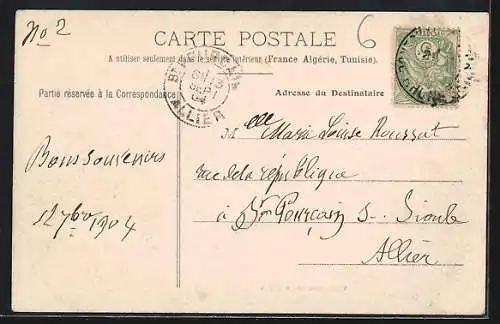 No 2
6
CARTE POSTALE
A utiliser seulement dans le service intérieur (France Algérie, Tunisie).
Partie réservée à la Correspondance
Adresse du Destinataire
ALLIER
Melle Marie Louise Roussat
rue de la république
à St Pourçain s. Sioule
Allier
Bons souvenirs
12 7bre 1904